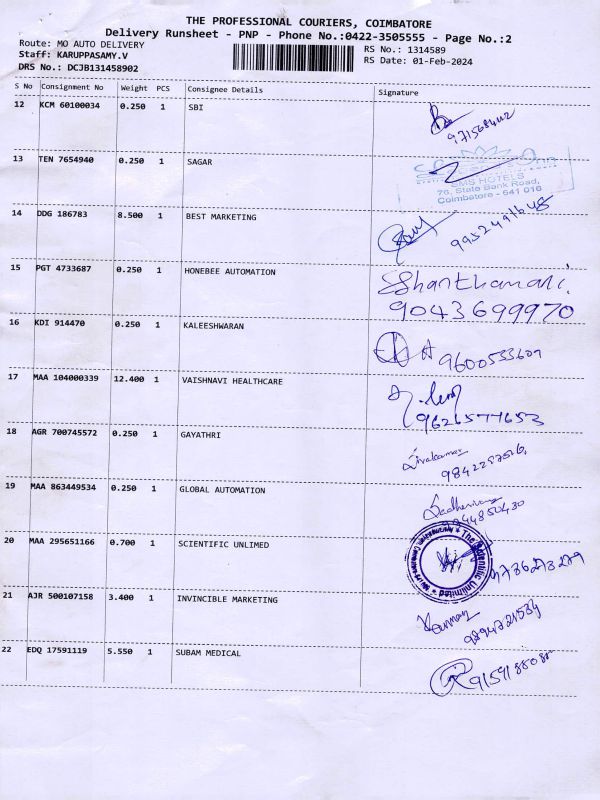 THE PROFESSIONAL COURIERS, COIMBATORE
Delivery Runsheet - PNP - Phone No.:0422-3505555 - Page No.:2
Route: MO AUTO DELIVERY
RS No.: 1314589
Staff: KARUPPASAMY.V
RS Date: 01-Feb-2024
DRS No.: DCJB131458902
S No Consignment No Weight PCS Consignee Details Signature
12 KCM 60100034 0.250 1 SBI
13 TEN 7654940 0.250 1 SAGAR
SMS HOTELS
76, State Bank Road,
Coimbatore - 641 018
14 DDG 186783 8.500 1 BEST MARKETING
15 PGT 4733687 0.250 1 HONEBEE AUTOMATION
Shanthamani
9043699970
16 KDI 914470 0.250 1 KALEESHWARAN
9600533609
17 MAA 104000339 12.400 1 VAISHNAVI HEALTHCARE
9626577653
18 AGR 700745572 0.250 1 GAYATHRI
Sivakumar
19 MAA 863449534 0.250 1 GLOBAL AUTOMATION
20 MAA 295651166 0.700 1 SCIENTIFIC UNLIMED
The Scientific Unlimited
21 AJR 500107158 3.400 1 INVINCIBLE MARKETING
22 EDQ 17591119 5.550 1 SUBAM MEDICAL